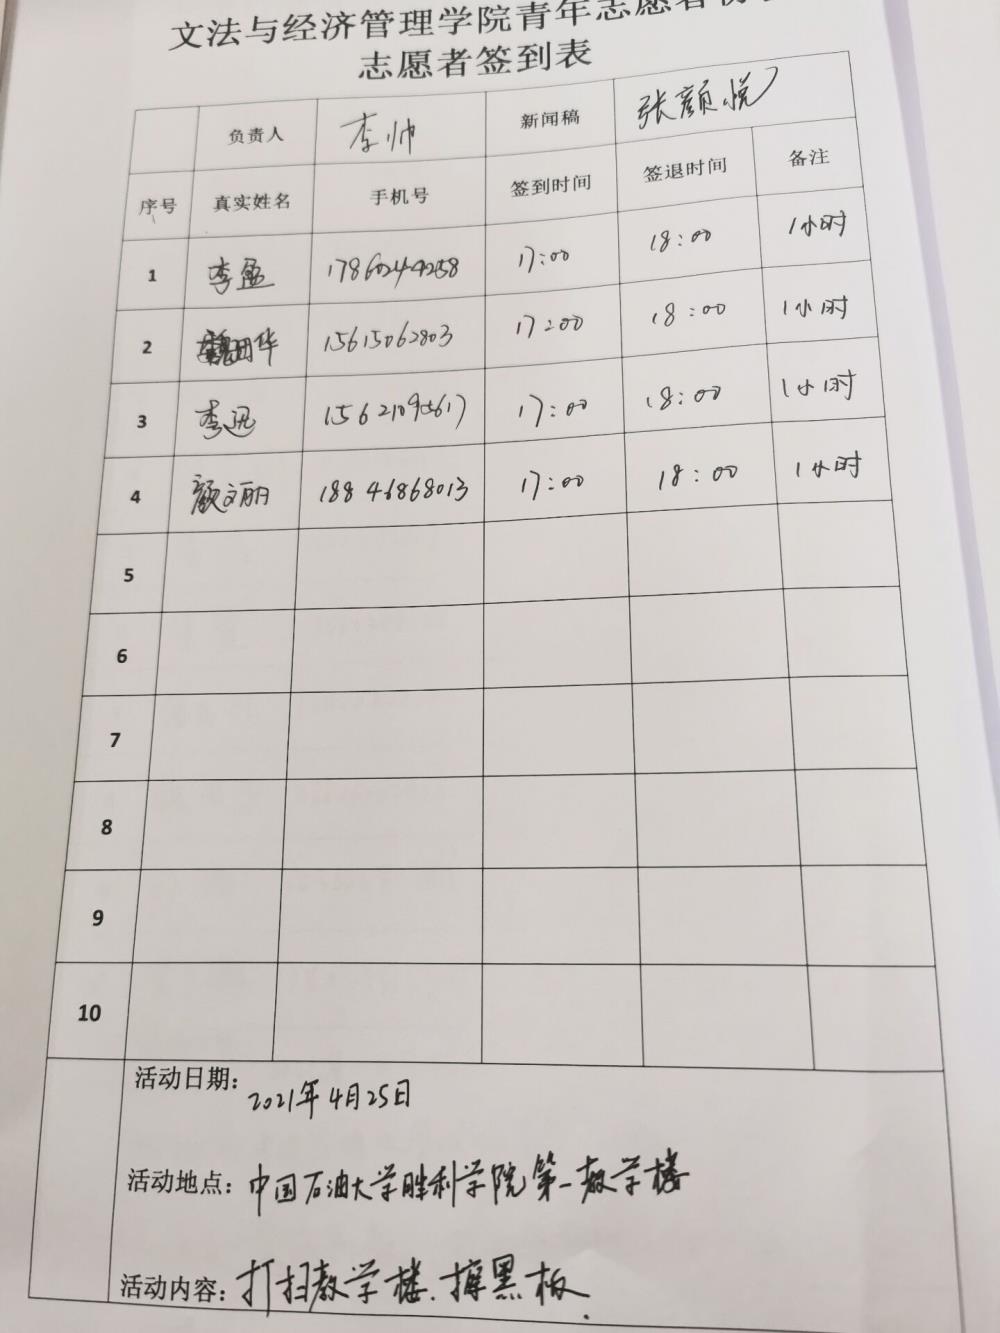 文法与经济管理学院青年志愿者协会
志愿者签到表
负责人 李帅 新闻稿 张颜悦
序号 真实姓名 手机号 签到时间 签退时间 备注
1 李盈 17:00 18:00 1小时
2 15615062803 17:00 18:00 1小时
3 李迅 15621095617 17:00 18:00 1小时
4 颜文丽 18846868013 17:00 18:00 1小时
5
6
7
8
9
10
活动日期: 2021年4月25日
活动地点: 中国石油大学胜利学院第一教学楼
活动内容: 打扫教学楼、擦黑板.